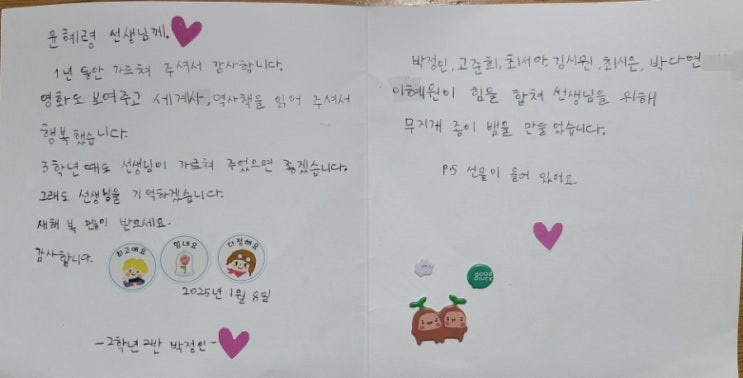 윤혜령 선생님께.
1년 동안 가르쳐 주셔서 감사합니다.
영화도 보여주고 세계사, 역사책을 읽어 주셔서
행복했습니다.
3학년 때도 선생님이 가르쳐 주었으면 좋겠습니다.
그래도 선생님을 기억하겠습니다.
새해 복 많이 받으세요.
감사합니다.
최고예요
힘내요
다정해요
2025년 1월 8일
-2학년 2반 박정인-
박정인, 고준희, 최서아, 김시원, 최시은, 박다연
이혜원이 힘을 합쳐 선생님을 위해
무지개 종이 뱀을 만들었습니다.
PS 선물이 들어 있어요
GOOD